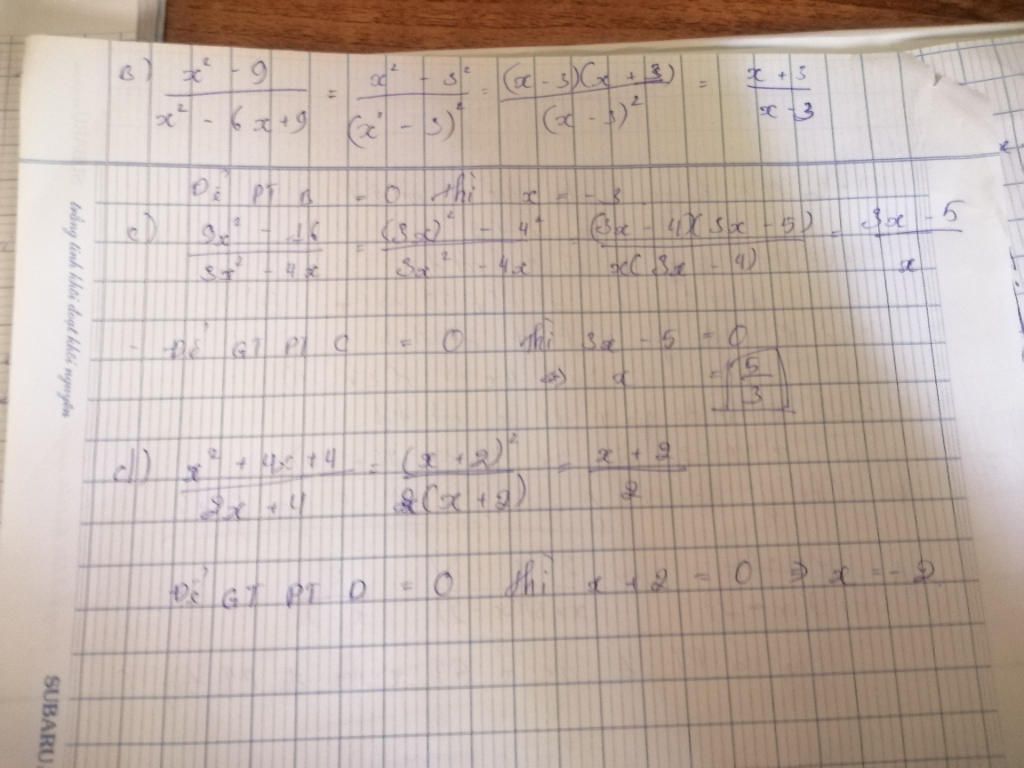 B) (x² - 9)/(x² - 6x+9) = (x² - 3²)/(x - 3)² = (x - 3)(x + 3)/(x - 3)² = (x + 3)/(x - 3)
Để PT B = 0 thì x = -3
C) (9x² - 16)/(3x² - 4x) = ((3x)² - 4²)/(3x² - 4x) = (3x - 4)(3x - 5)/x(3x - 4) = (3x - 5)/x
- Để GT PT C = 0 thì 3x - 5 = 0
<=> x = 5/3
d) (x² + 4x + 4)/(2x + 4) = (x + 2)²/2(x + 2) = (x + 2)/2
Để GT PT D = 0 thì x + 2 = 0 => x = -2
SUBARU